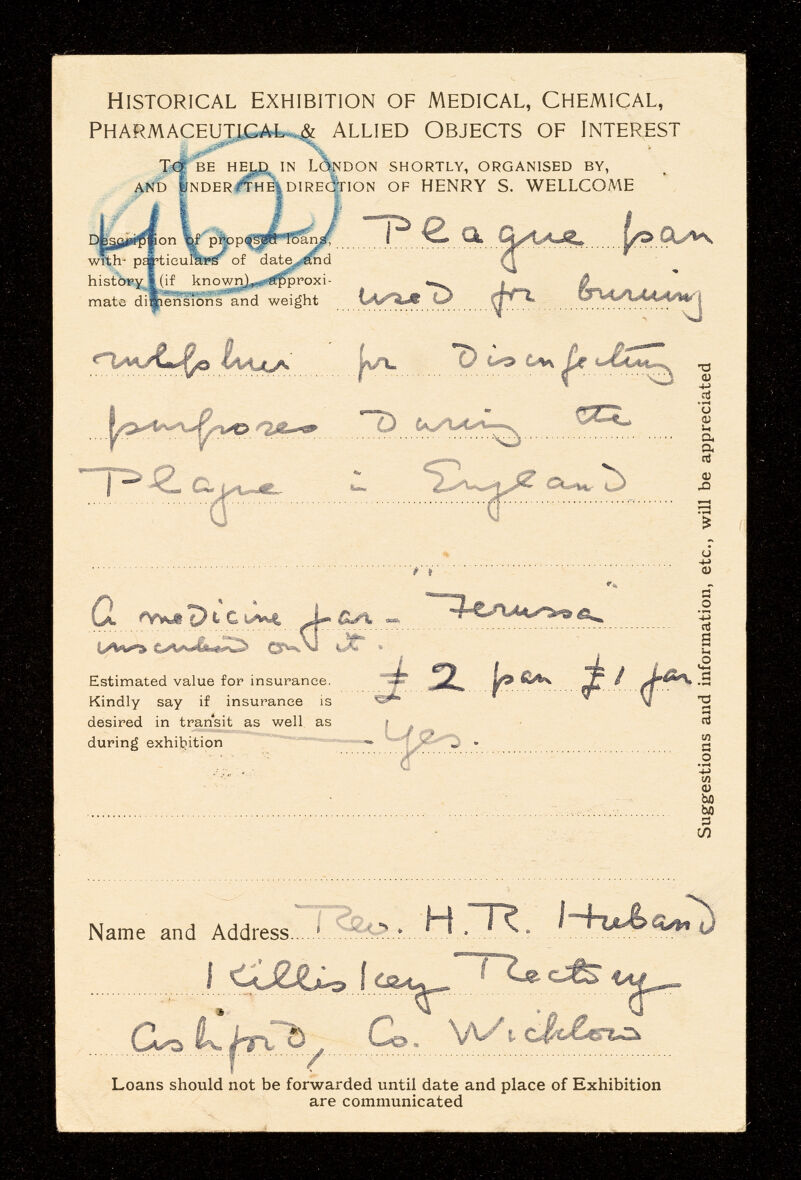 HISTORICAL EXHIBITION OF MEDICAL, CHEMICAL,
PHARMACEUTICAL & ALLIED OBJECTS OF INTEREST
TO BE HELD IN LONDON SHORTLY, ORGANISED BY,
AND UNDER THE DIRECTION OF HENRY S. WELLCOME
Description of proposed loans,
with particulars of date and
history (if known), approxi-
mate dimensions and weight
Plague pan
used for burning
sulphur for Disinfecting
purposes During the
Plague in England
A medicine jar - "Ferussa"
inscribed on it.
Estimated value for insurance.
Kindly say if insurance is
desired in transit as well as
during exhibition
£2 pan £1 jar
Yes.
Suggestions and information, etc., will be appreciated
Name and Address Rev. H. R. Huband
Killiskey Rectory
Ashford, Co. Wicklow
Loans should not be forwarded until date and place of Exhibition
are communicated